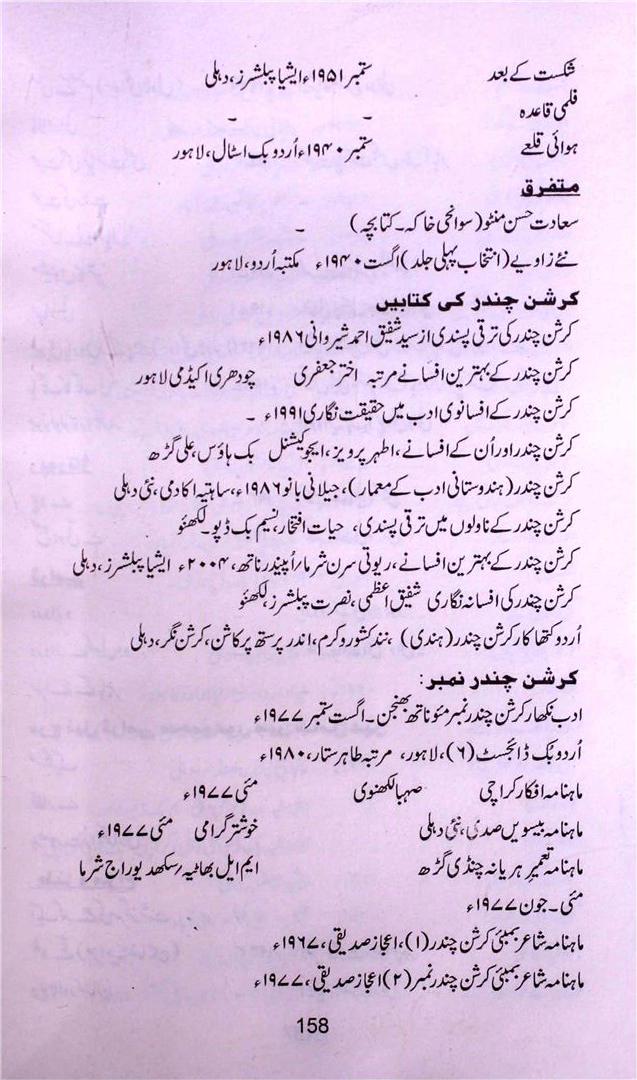 شکست کے بعد ستمبر ۱۹۵۱ء ایشیا پبلشرز، دہلی
فلمی قاعدہ - -
ہوائی قلعے ستمبر ۱۹۴۰ء اُردو بک اسٹال، لاہور
متفرق
سعادت حسن منٹو (سوانحی خاکہ۔ کتابچہ) -
نئے زاویے (انتخاب پہلی جلد) اگست ۱۹۴۰ء مکتبہ اُردو، لاہور
کرشن چندر کی کتابیں
کرشن چندر کی ترقی پسندی از سید شفیق احمد شیروانی ۱۹۸۶ء
کرشن چندر کے بہترین افسانے مرتبہ اختر جعفری چودھری اکیڈمی لاہور
کرشن چندر کے افسانوی ادب میں حقیقت نگاری ۱۹۹۱ء -
کرشن چندر اور اُن کے افسانے، اطہر پرویز، ایجوکیشنل بک ہاؤس، علی گڑھ
کرشن چندر (ہندوستانی ادب کے معمار)، جیلانی بانو ۱۹۸۶ء، ساہتیہ اکادمی، نئی دہلی
کرشن چندر کے ناولوں میں ترقی پسندی، حیات افتخار، نسیم بک ڈپو۔ لکھنؤ
کرشن چندر کے بہترین افسانے، ریوتی سرن شرما/ اُپیندر ناتھ، ۲۰۰۴ء ایشیا پبلشرز، دہلی
کرشن چندر کی افسانہ نگاری شفیق اعظمی، نصرت پبلشرز، لکھنؤ
اُردو کتھا کار کرشن چندر (ہندی)، نند کشور وکرم، اندر پرستھ پرکاشن، کرشن نگر، دہلی
کرشن چندر نمبر:
ادب نکھار کرشن چندر نمبر مئو ناتھ بھنجن۔ اگست ستمبر ۱۹۷۷ء
اُردو بک ڈائجسٹ (۶)، لاہور، مرتبہ طاہر ستار، ۱۹۸۰ء
ماہنامہ افکار کراچی صہبا لکھنوی مئی ۱۹۷۷ء
ماہنامہ بیسویں صدی، نئی دہلی خوشتر گرامی مئی ۱۹۷۷ء
ماہنامہ تعمیرِ ہریانہ چنڈی گڑھ ایم ایل بھاٹیہ / سکھد یوراج شرما
مئی۔ جون ۱۹۷۷ء
ماہنامہ شاعر بمبئی کرشن چندر (۱)، اعجاز صدیقی، ۱۹۶۷ء
ماہنامہ شاعر بمبئی کرشن چندر نمبر (۲) اعجاز صدیقی، ۱۹۷۷ء
158